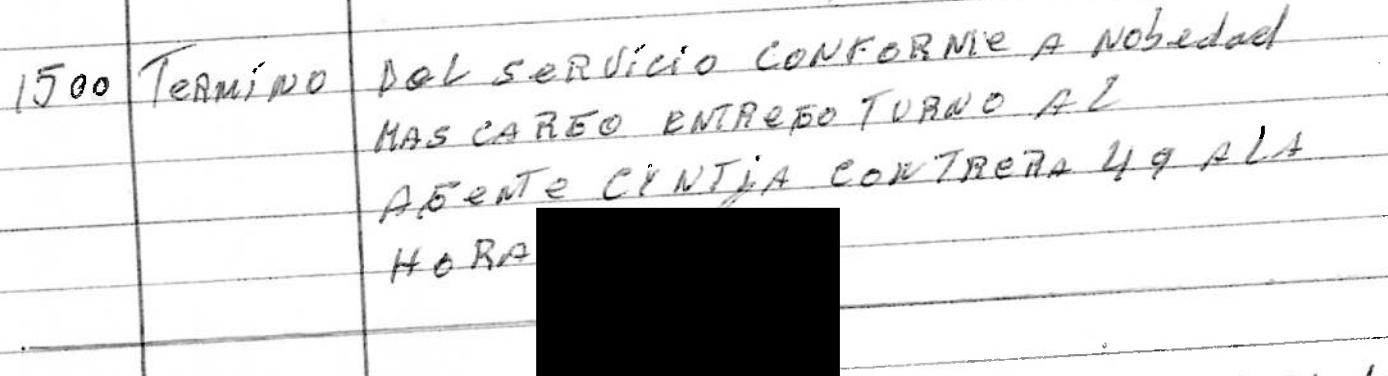 1500 TeRMiNO DeL SeRVicio CONFORMe A Nobedad
MAS CARGO ENTReGO TURNO AL
AGeNTe CYNTiA CONTReRA 49 A LA
HORA